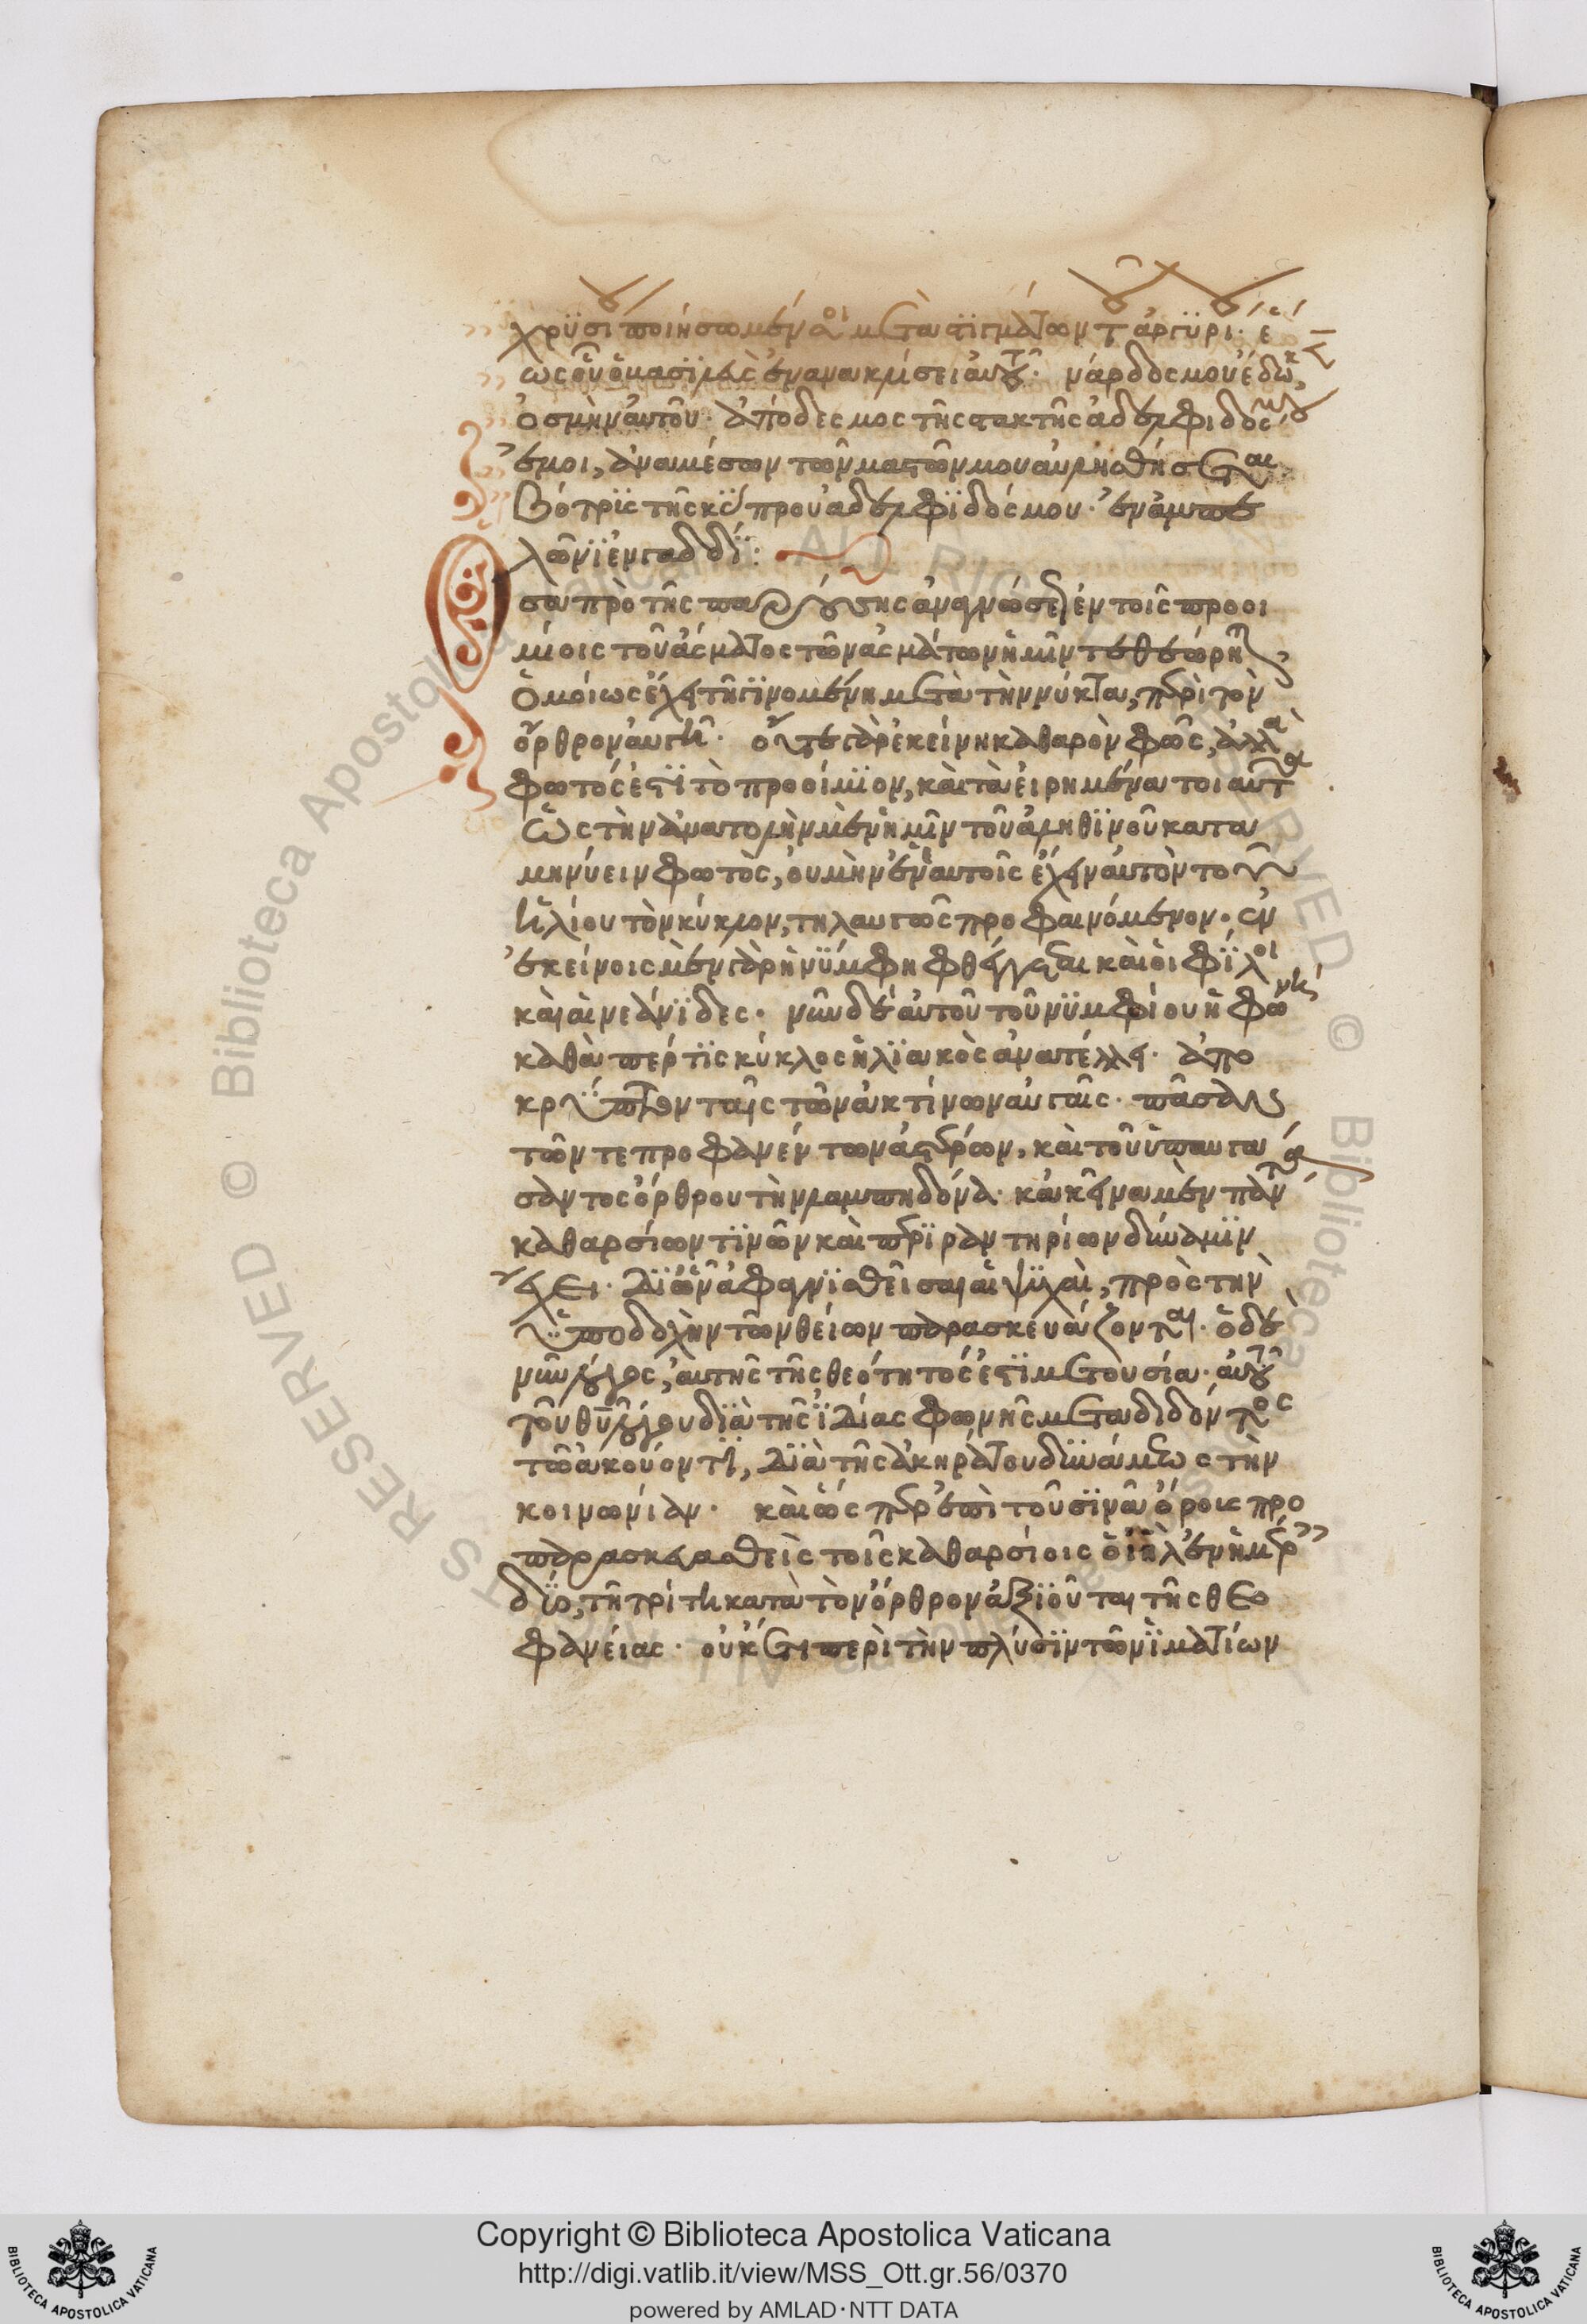 χρϋσί ποιήσωμέν σοι μετὰ στϊγμάτων τ ἀργϋρί· ἕ
ως οὗ ὁ βασϊλεὺς ἐν ἀνακλίσει αὐτοῦ· νάρδος μου ἔδωκ
ὀσμὴν αὐτοῦ· ἀπόδεσμος τῆς στακτῆς ἀδελφιδός μου
ἐμοὶ, ἀναμέσων τῶν μαστῶν μου αὐλησθήσεται
βότρϋς τῆς κϋπρου ἀδελφϊδός μου· ἐν ἀμπε
λῶνϊ ἐνγαδδϊ:
Ὅσα πρὸ τῆς παρούσης ἀναγνώσεως ἐν τοῖς προοι
μίοις τοῦ ἄσματος τῶν ἀσμάτων ἡμῖν τεθεώρη
ὁμοίως ἔχει τῆ γϊνομένη μετὰ τὴν νύκτα, περὶ τὸν
ὄρθρον αὐγῆ· οὔτε γὰρ ἐκείνη καθαρὸν φῶς, ἀλλὰ
φωτός ἐστϊ τὸ προοίμϊον, καὶ τὰ εἰρημένα τοιαῦτα
ὡς τὴν ἀνατολὴν μὲν ἡμῖν τοῦ ἀληθϊνοῦ κατα
μηνύειν φωτὸς, οὐ μὴν ἐν ἑαυτοῖς ἔχειν αὐτὸν τοῦ
ἡλίου τὸν κύκλον, τηλαυγῶς προφαινόμενον· ἐν
ἐκείνοις μὲν γὰρ ἡ νϋμφη φθέγγεται καὶ οἱ φϊλοι
καὶ αἱ νεάνϊδες· νῦν δὲ αὐτοῦ τοῦ νϋμφίου ἡ φωνὴ
καθάπερ τϊς κύκλος ἡλϊακὸς ἀνατέλλει· ἀπο
κρϋπτων ταῖς τῶν ἀκτίνων αὐγαῖς· πᾶσαν
τῶν τε προφανέντων ἀστέρων, καὶ τοῦ ὑπαυγά
σαντος ὄρθρου τὴν λαμπηδόνα· κἀκεῖνα μὲν πάντα
καθαρσίων τϊνῶν καὶ περϊραντηρίων δύναμϊν
ἔχει· δϊ ὧν ἀφαγνϊσθεῖσαι αἱ ψϋχαὶ, πρὸς τὴν
ὑποδοχὴν τῶν θείων παρασκευάζονται· ὁ δὲ
νῦν λόγος, αὐτῆς τῆς θεότητός ἐστϊ μετουσία· αὐτοῦ
τοῦ θυ λόγου δϊὰ τῆς ἰδίας φωνῆς μεταδιδόντος
τῶ ἀκούοντϊ, δϊὰ τῆς ἀκηράτου δυνάμεως τὴν
κοινωνίαν· καὶ ὡς περ ἐπὶ τοῦ σϊνᾶ ὄρους προ
παρασκευασθεὶς τοῖς καθαρσίοις ὁ ιηλ ἐν ἡμέραις
δϋο, τῆ τρίτη κατὰ τὸν ὄρθρον ἀξϊοῦται τῆς θεο
φανείας· οὐκέτι περὶ τὴν πλύσϊν τῶν ἱματίων
Copyright © Biblioteca Apostolica Vaticana
http://digi.vatlib.it/view/MSS_Ott.gr.56/0370
powered by AMLAD·NTT DATA